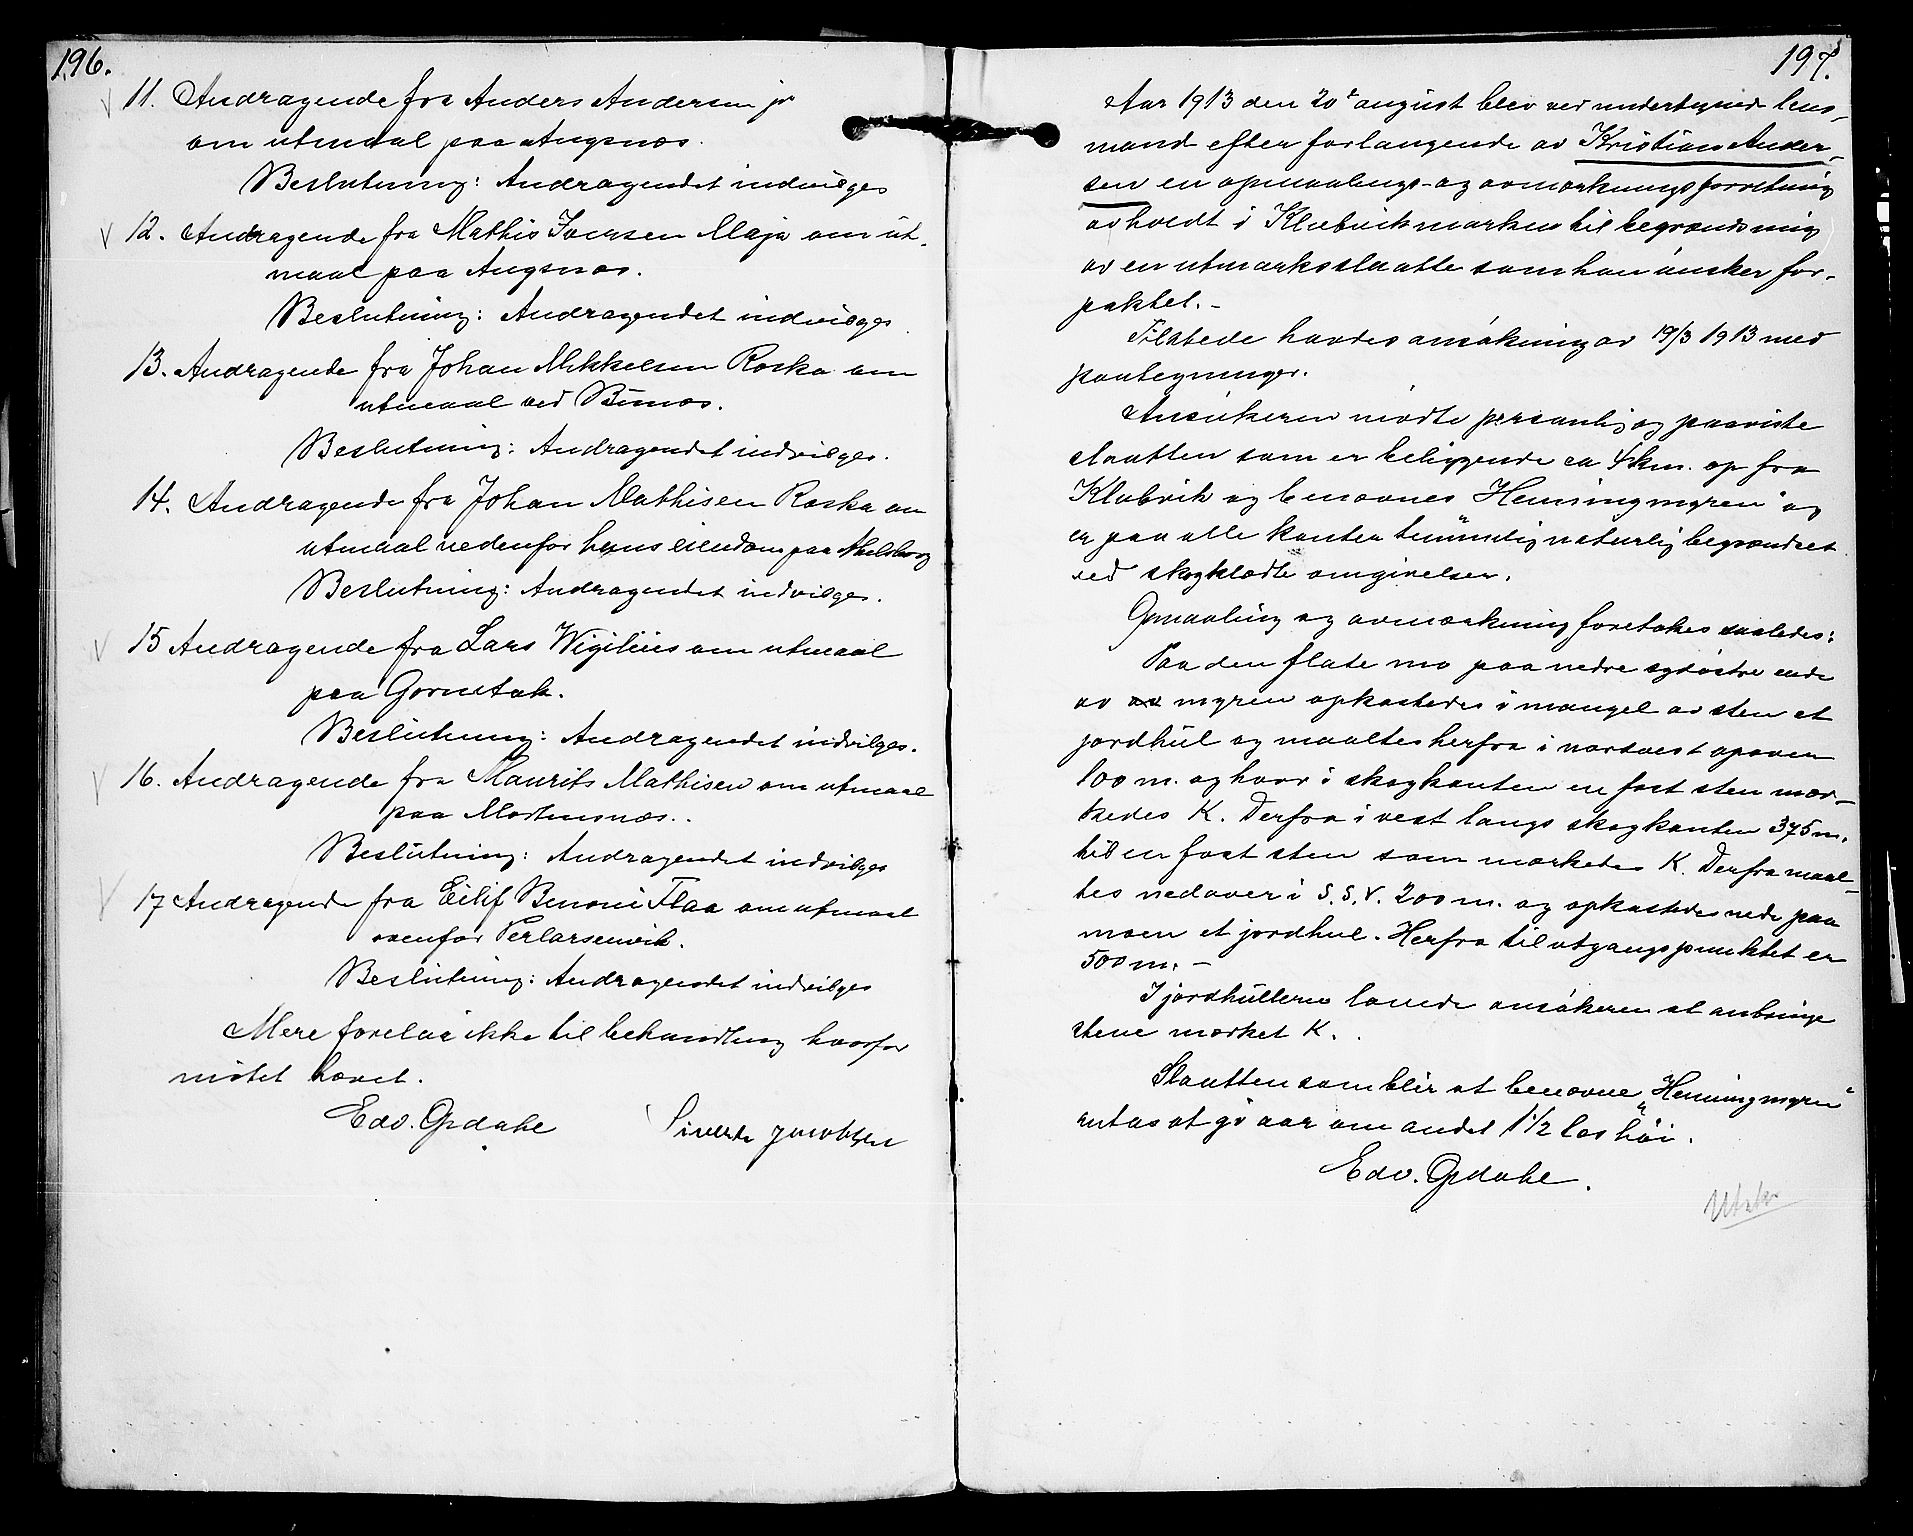 196.
11. Andragende fra Anders Andersen jr
om utmaal paa Angsnæs.
Beslutning: Andragendet indvilges
12. Andragende fra Mathis Iversen Maja om ut-
maal paa Angsnæs.
Beslutning: Andragendet indvilges.
13. Andragende fra Johan Mikkelsen Roska om
utmaal ved Bunæs.
Beslutning: Andragendet indvilges.
14. Andragende fra Johan Mathisen Roska om
utmaal nedenfor hans eiendom paa
Beslutning: Andragendet indvilges.
15 Andragende fra Lars Wigilius om utmaal
paa Gornetak.
Beslutning: Andragendet indvilges.
16. Andragende fra Maurits Mathisen om utmaal
paa Mortensnæs.
Beslutning: Andragendet indvilges
17 Andragende fra Eilif Benoni Flaa om utmaal
ovenfor Perlarsenvik.
Beslutning: Andragendet indvilges
Mere forelaa ikke til behandling hvorfor
møtet hævet.
Edv. Opdahl Sivert Jacobsen
197.
Aar 1913 den 20de august blev ved undertegnede lens-
mand efter forlangende av Kristian Ander-
sen en opmaalings- og avmærkningsforretning
avholdt i Klubvikmarken til begrænsning
av en utmarksslaatte som han ønsker for-
paktet.-
Tilstede havdes ansøkning av 19/3 1913 med
paategninger.
Ansøkeren mødte personlig og paaviste
slaatten som er beliggende ca 4 km. op fra
Klubvik og benævnes Henningmyren" og
er paa alle kanter temmelig naturlig begrændset
ved skogklædte omgivelser.
Opmaaling og avmærkning foretokes saaledes:
Paa den flate mo paa nedre sydøstre ende
av myren opkastedes i mangel av sten et
jordhul og maaltes herfra i nordvest opover
100 m. og hvor i skogkanten en fast sten mær-
kedes K. Derfra i vest langs skogkanten 375 m.
til en fast sten som mærkedes K. Derfra maal-
tes nedover i S.S.V. 200 m. og opkastedes nede paa
moen et jordhul. Herfra til utgangspunktet er
500 m. -
I jordhullerne lovede ansøkeren at anbringe
stene mærket K.
Slaatten som blir at benævne „Henningmyren"
antas at gi aar om andet 1 1/2 las høi.
Edv. Opdahl.